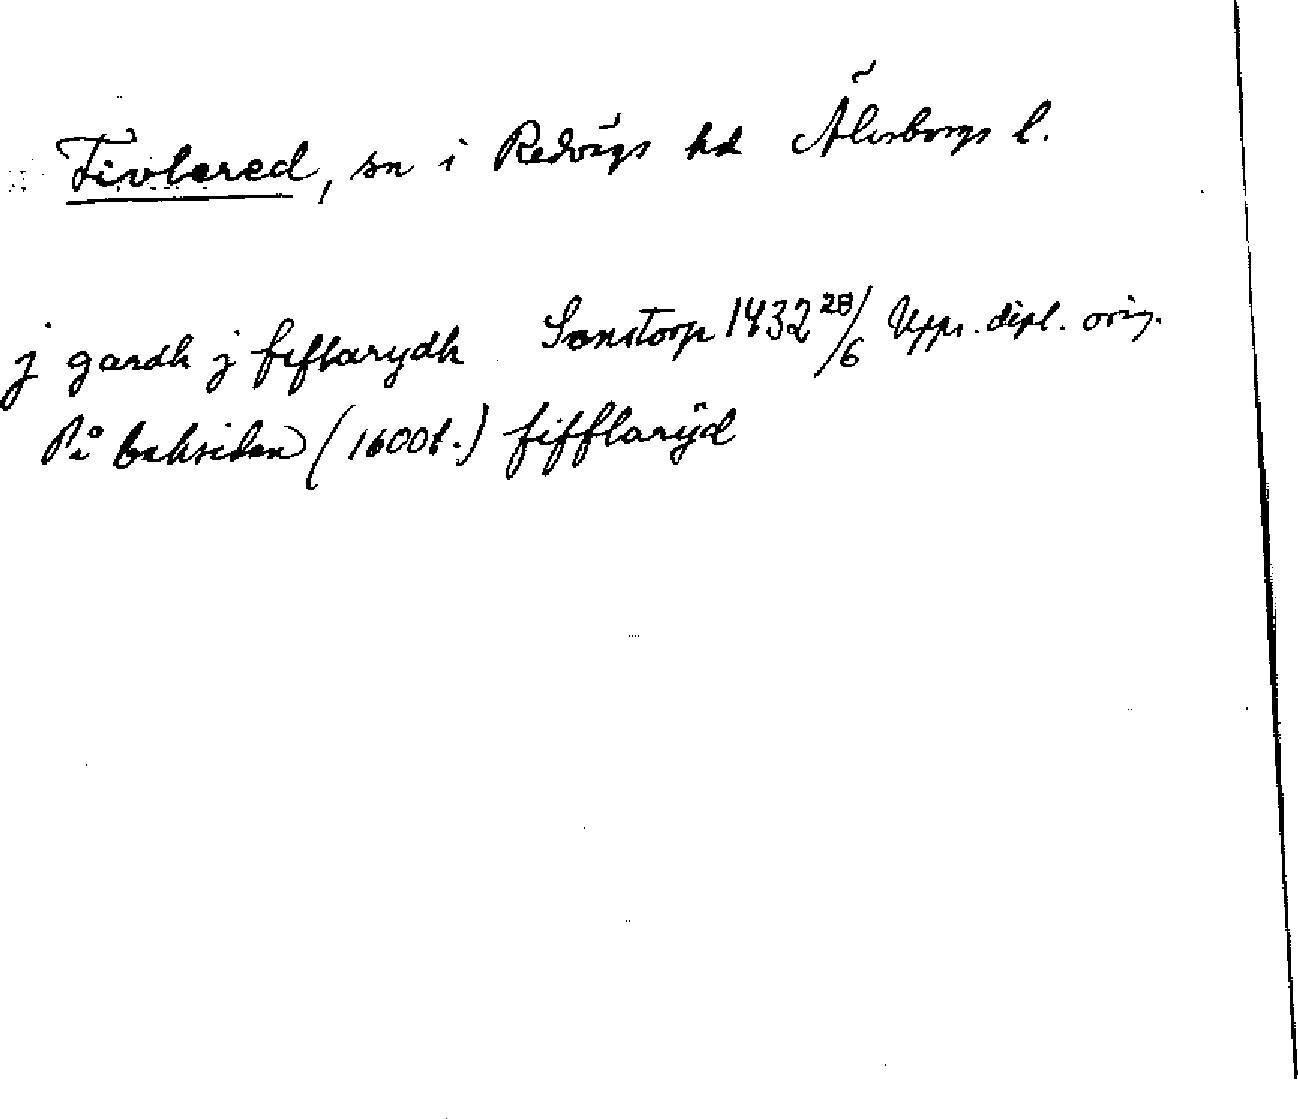 Fivlered, sn i Redvägs hd Älvsborgs l.
j gardh j fiflarydh Sonstorp 1432 28/6 Upps. dipl. orig.
På baksidan (1600t.) fifflarÿd